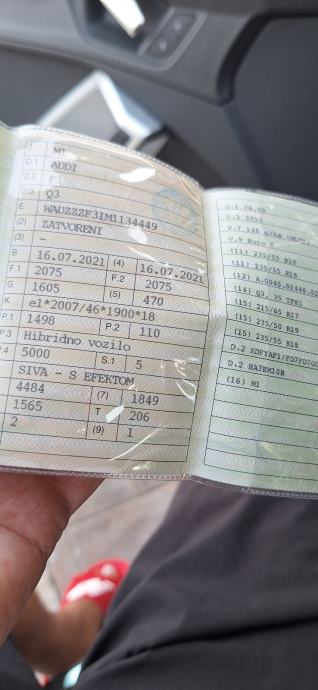 J M1
D.1 AUDI
D.2 F3
D.3 Q3
E WAUZZZF31M1134449
(2) ZATVORENI
(3) -
B 16.07.2021 (4) 16.07.2021
F.1 2075 F.2 2075
G 1605 (5) 470
K e1*2007/46*1900*18
P.1 1498 P.2 110
P.3 Hibridno vozilo
P.4 5000 S.1 5
SIVA - S EFEKTOM
4484 (7) 1849
1565 T 206
2 (9) 1
U.1 76.00
U.2 3750
V.9 Euro 6
(11) 235/55 R18
(11) 235/55 R18
(14) Q3, 35 TFSI
(15) 215/65 R17
(15) 235/50 R19
(15) 235/55 R18
D.2
D.2
(16) M1